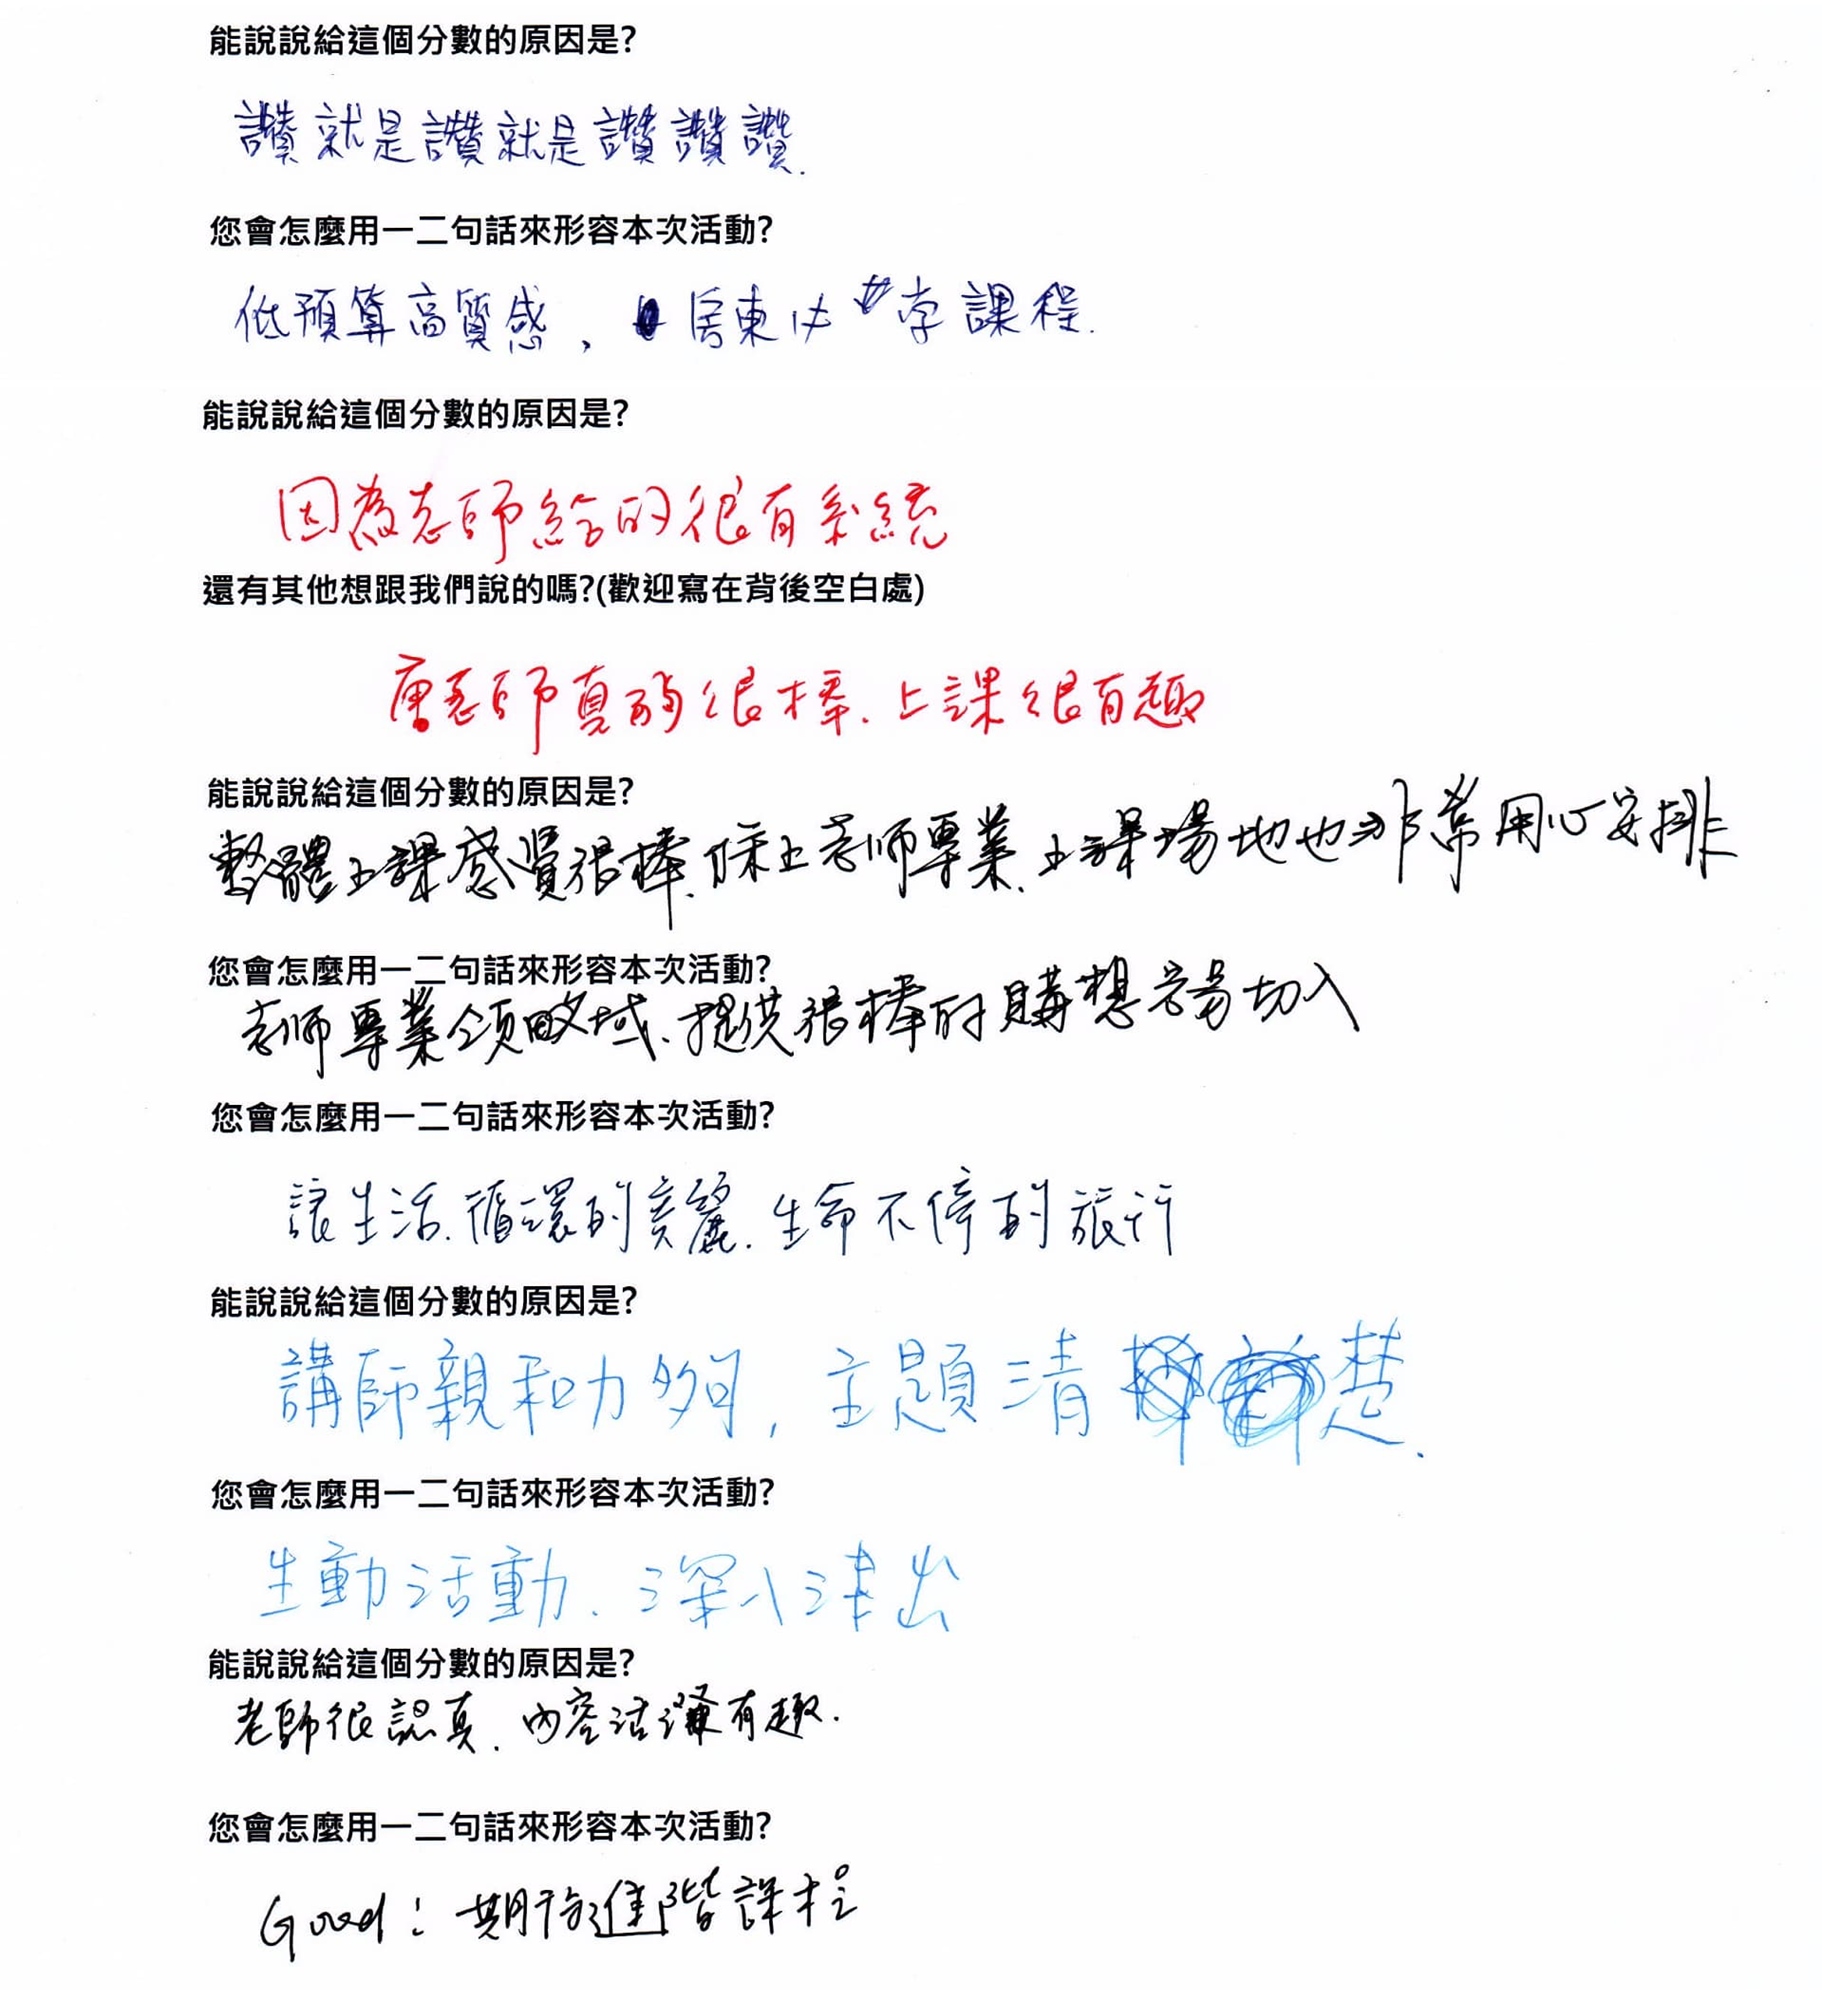 能說說給這個分數的原因是?
讚就是讚就是讚讚讚.
您會怎麼用一二句話來形容本次活動?
低預算高質感, 房東必學課程.
能說說給這個分數的原因是?
因為老師給的很有系統
還有其他想跟我們說的嗎?(歡迎寫在背後空白處)
唐老師真的很棒.上課很有趣
能說說給這個分數的原因是?
整體上課感覺很棒.保上老師專業.上課場地也非常用心安排
您會怎麼用一二句話來形容本次活動?
老師專業領域.提供很棒的購想 切入
您會怎麼用一二句話來形容本次活動?
讓生活.循環的亮麗.生命不停的旅行
能說說給這個分數的原因是?
講師親和力夠, 主題清楚.
您會怎麼用一二句話來形容本次活動?
生動活動.深入淺出
能說說給這個分數的原因是?
老師很認真.內容活潑有趣.
您會怎麼用一二句話來形容本次活動?
Good! 期待進階課程